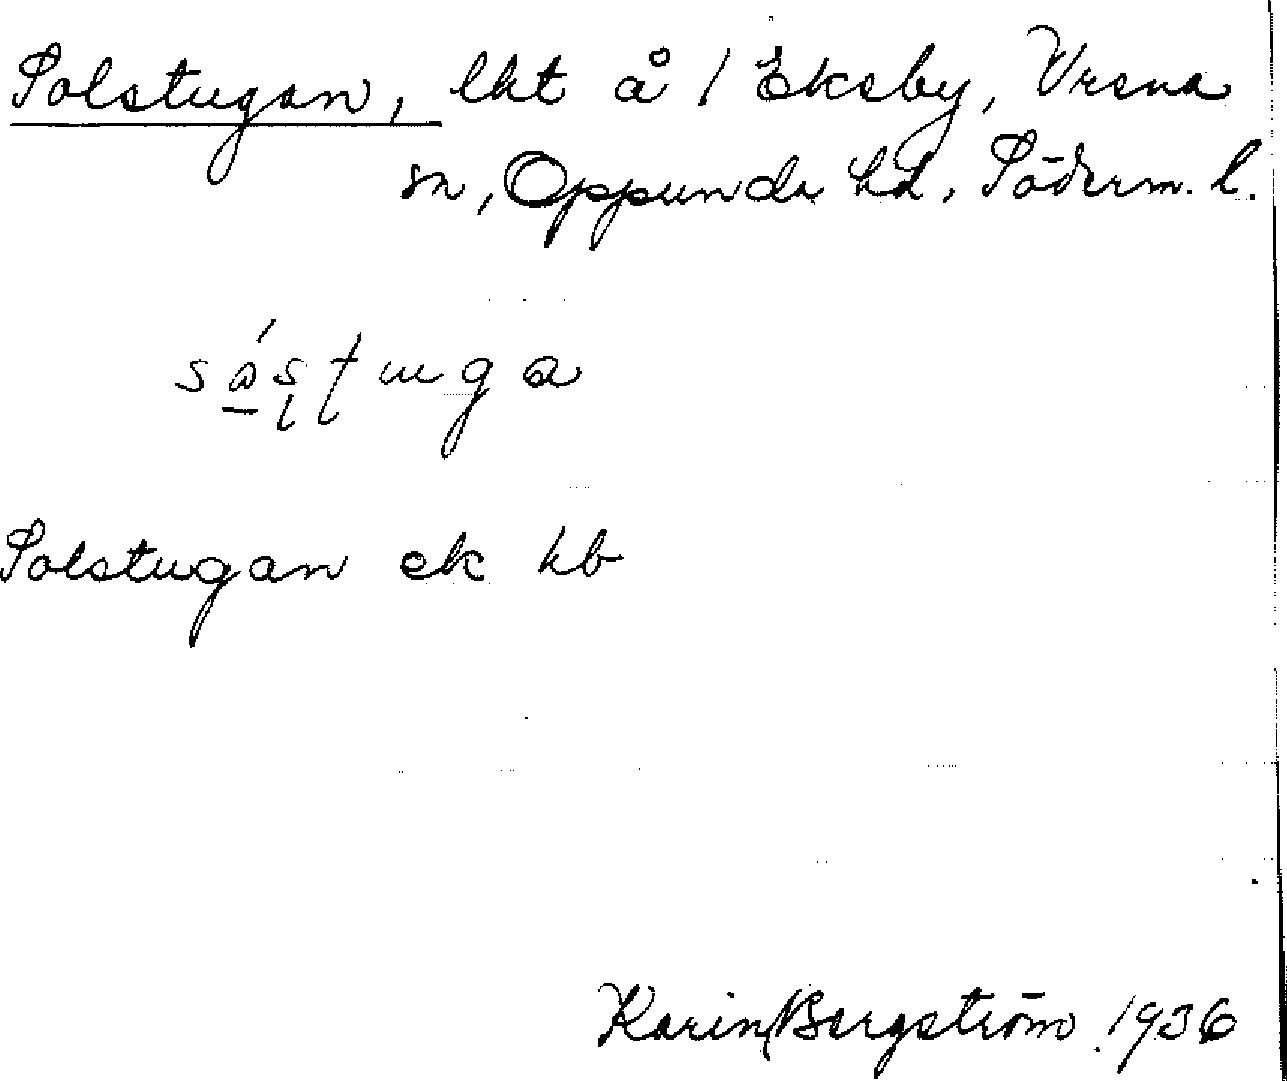 Solstugan, lht å / Eksby, Vrena
sn, Oppunda hd, Söderm. l.
Solstugan ek kb
Karin Bergström 1936